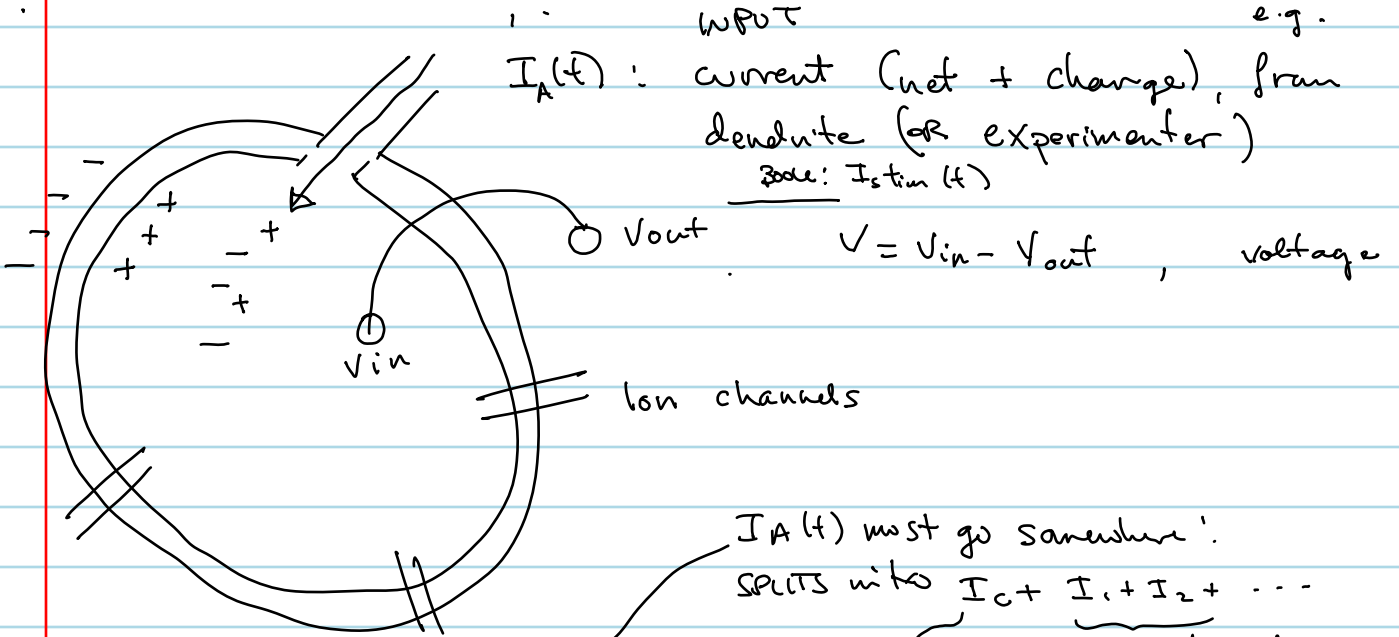 INPUT e.g.
I_A(t) : current (net + charge), from
dendrite (OR experimenter)
Book: Istim(t)
Vout V = Vin - Vout , voltage
Vin
Ion channels
I_A(t) must go somewhere:
SPLITS into I_C + I_1 + I_2 + ...